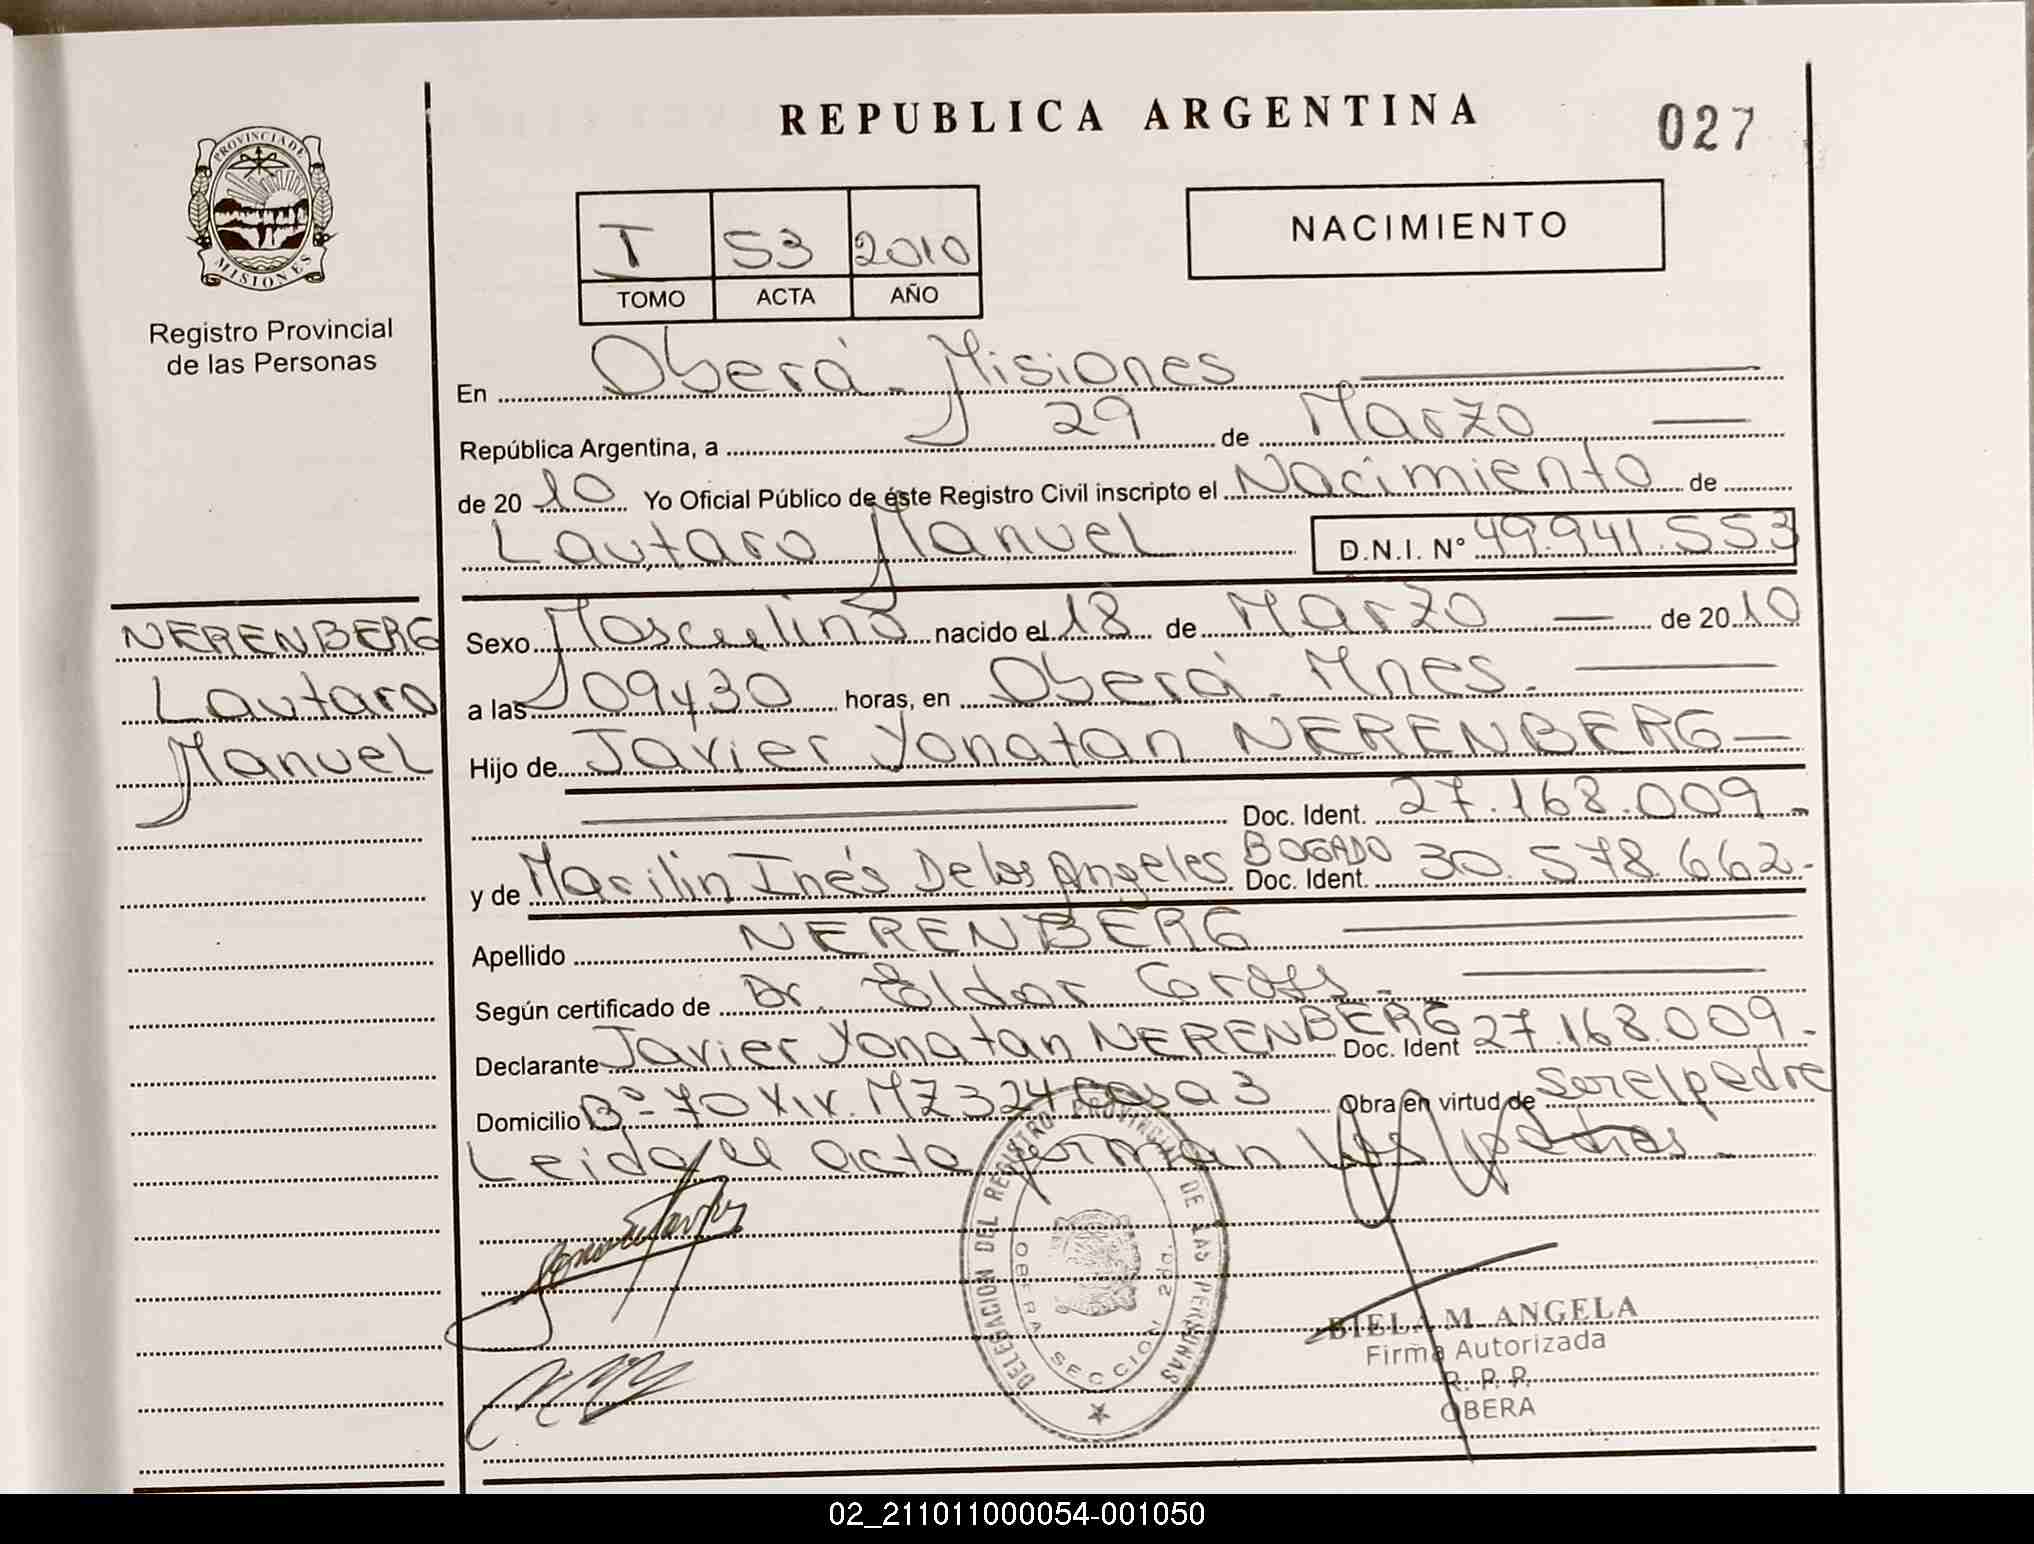 REPUBLICA ARGENTINA
027
PROVINCIA DE
MISIONES
Registro Provincial
de las Personas
I 53 2010
TOMO ACTA AÑO
NACIMIENTO
En Oberá - Misiones
República Argentina, a 29 de Marzo
de 20 10 Yo Oficial Público de éste Registro Civil inscripto el Nacimiento de
Lautaro Manuel D.N.I. Nº 49.941.553
NERENBERG
Lautaro
Manuel
Sexo Masculino nacido el 18 de Marzo de 20 10
a las 09y30 horas, en Oberá - Mnes.
Hijo de Javier Yonatan NERENBERG
Doc. Ident. 27.168.009.-
y de Marilin Inés De los Angeles BOGADO Doc. Ident. 30.578.662.-
Apellido NERENBERG
Según certificado de Dr. Eldor Gross.-
Declarante Javier Yonatan NERENBERG Doc. Ident 27.168.009.-
Domicilio Bº- 70 Viv. MZ 324 casa 3 Obra en virtud de Ser el padre
Leida el acta forman los padres.-
DELEGACION DEL REGISTRO PROVINCIAL DE LAS PERSONAS
OBERA SECCION 2da.
BIELA M. ANGELA
Firma Autorizada
R. P. P.
OBERA
02_211011000054-001050